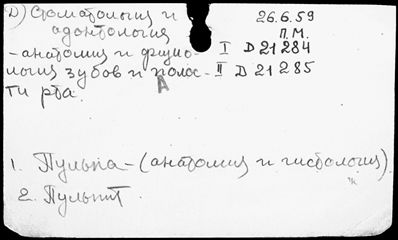 Д) Стоматология и 26.6.59
одонтология П.М.
- анатомия и физио- I D 21 284
логия зубов и полос- II D 21 285
ти рта.
А
1. Пульпа - (анатомия и гистология)
2. Пульпит